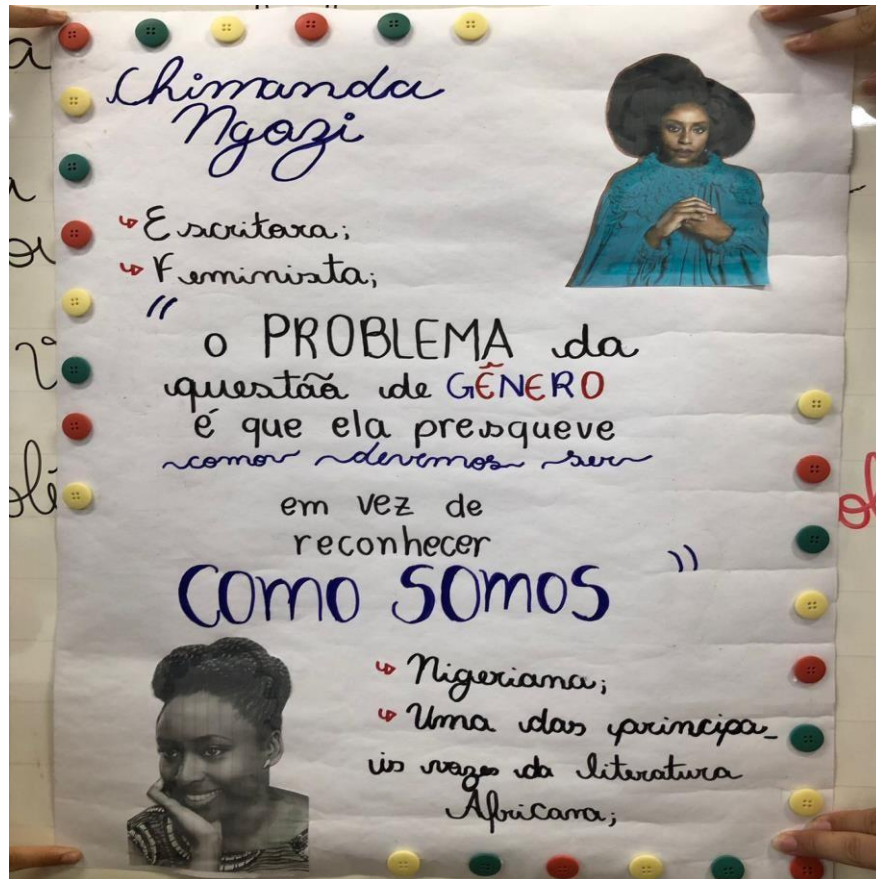 Chimanda
Ngozi
↳ Escritora;
↳ Feminista;
"
O PROBLEMA da
questão de GÊNERO
é que ela presqueve
como devemos ser
em vez de
reconhecer
COMO SOMOS "
↳ Nigeriana;
↳ Uma das principa_
is vozes da literatura
Africana;